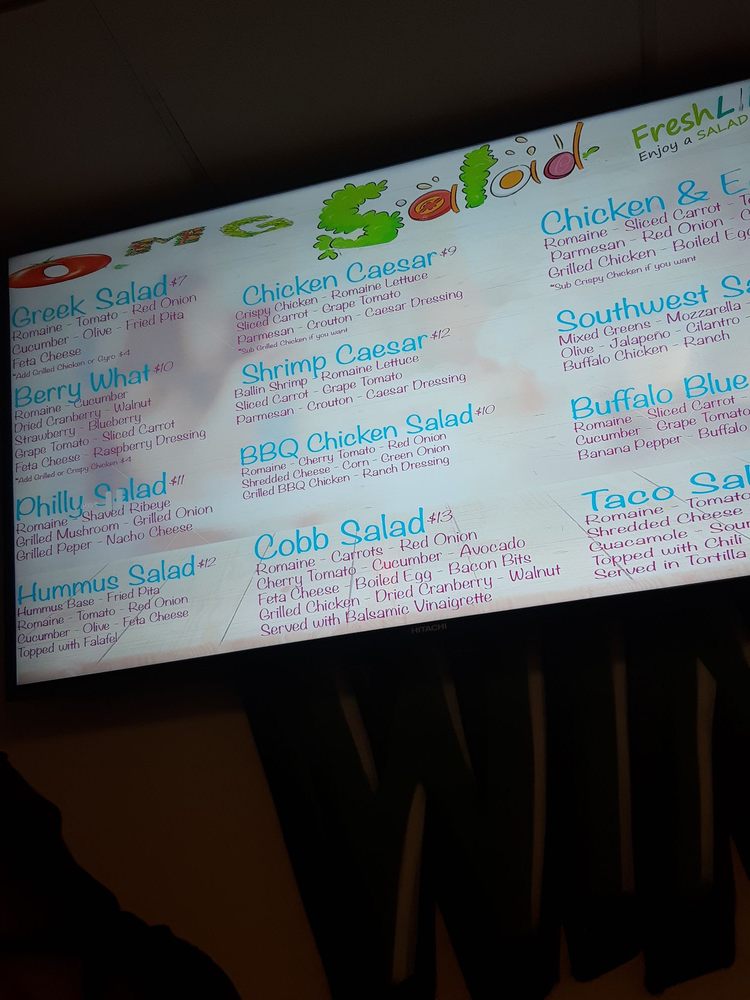 OMG Salad
FreshLi
Enjoy a SALAD
Greek Salad $7
Romaine - Tomato - Red Onion
Cucumber - Olive - Fried Pita
Feta Cheese
*Add Grilled Chicken or Gyro $4
Berry What $10
Romaine - Cucumber
Dried Cranberry - Walnut
Strawberry - Blueberry
Grape Tomato - Sliced Carrot
Feta Cheese - Raspberry Dressing
*Add Grilled or Crispy Chicken $4
Philly Salad $11
Romaine - Shaved Ribeye
Grilled Mushroom - Grilled Onion
Grilled Peper - Nacho Cheese
Hummus Salad $12
Hummus Base - Fried Pita
Romaine - Tomato - Red Onion
Cucumber - Olive - Feta Cheese
Topped with Falafel
Chicken Caesar $9
Crispy Chicken - Romaine Lettuce
Sliced Carrot - Grape Tomato
Parmesan - Crouton - Caesar Dressing
*Sub Grilled Chicken if you want
Shrimp Caesar $12
Ballin Shrimp - Romaine Lettuce
Sliced Carrot - Grape Tomato
Parmesan - Crouton - Caesar Dressing
BBQ Chicken Salad $10
Romaine - Cherry Tomato - Red Onion
Shredded Cheese - Corn - Green Onion
Grilled BBQ Chicken - Ranch Dressing
Cobb Salad $13
Romaine - Carrots - Red Onion
Cherry Tomato - Cucumber - Avocado
Feta Cheese - Boiled Egg - Bacon Bits
Grilled Chicken - Dried Cranberry - Walnut
Served with Balsamic Vinaigrette
Chicken & E
Romaine - Sliced Carrot - T
Parmesan - Red Onion - C
Grilled Chicken - Boiled Egg
*Sub Crispy Chicken if you want
Southwest Sa
Mixed Greens - Mozzarella
Olive - Jalapeño - Cilantro -
Buffalo Chicken - Ranch
Buffalo Blue
Romaine - Sliced Carrot -
Cucumber - Grape Tomato
Banana Pepper - Buffalo
Taco Sal
Romaine - Tomato
Shredded Cheese
Guacamole - Sour
Topped with Chili
Served in Tortilla
HITACHI
WIN